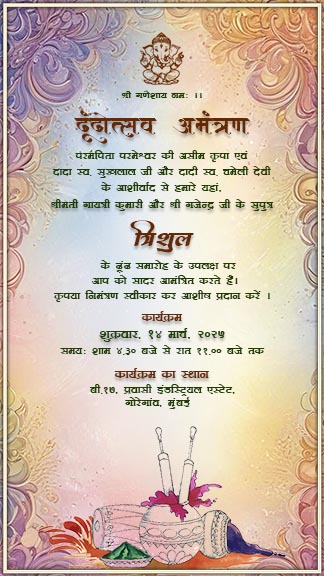 श्री गणेशाय नमः ।।
ढूंढोत्सव अमंत्रण
परमपिता परमेश्वर की असीम कृपा एवं
दादा स्व. सुखलाल जी और दादी स्व. चमेली देवी
के आशीर्वाद से हमारे यहां,
श्रीमती गायत्री कुमारी और श्री गजेन्द्र जी के सुपुत्र
त्रिशुल
के ढूंढ समारोह के उपलक्ष पर
आप को सादर आमंत्रित करते है।
कृपया निमंत्रण स्वीकार कर आशीष प्रदान करें ।
कार्यक्रम
शुक्रवार, १४ मार्च, २०२५
समय: शाम ४.३० बजे से रात ११.०० बजे तक
कार्यक्रम का स्थान
बी.१७, प्रवासी इंडस्ट्रियल एस्टेट,
गोरेगांव, मुंबई